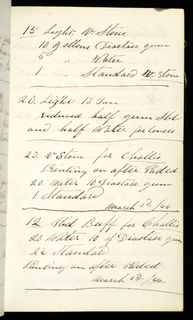 15 Light W. Stone
10 Gallons Diastase gum
5 " Water
1 " Standard W. Stone
20. Light
reduced half gum
and half Water for covers
20. W Stone for Challis
Printing on after Padded
20 Water 10 Diastase gum
1 Standard
March 5th/44
12 Buff for Challis
20 Water 10 of Diastase gum
2½ Standard
Printing on after Padded
March 5th/44